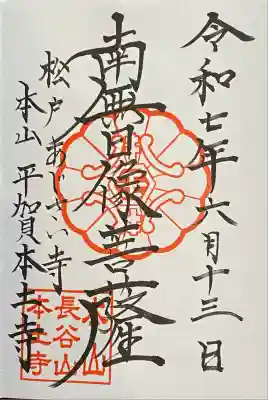 令和七年六月十三日
南無日像菩薩
松戸あじさい寺
本山平賀本土寺
本山
長谷山
本土寺